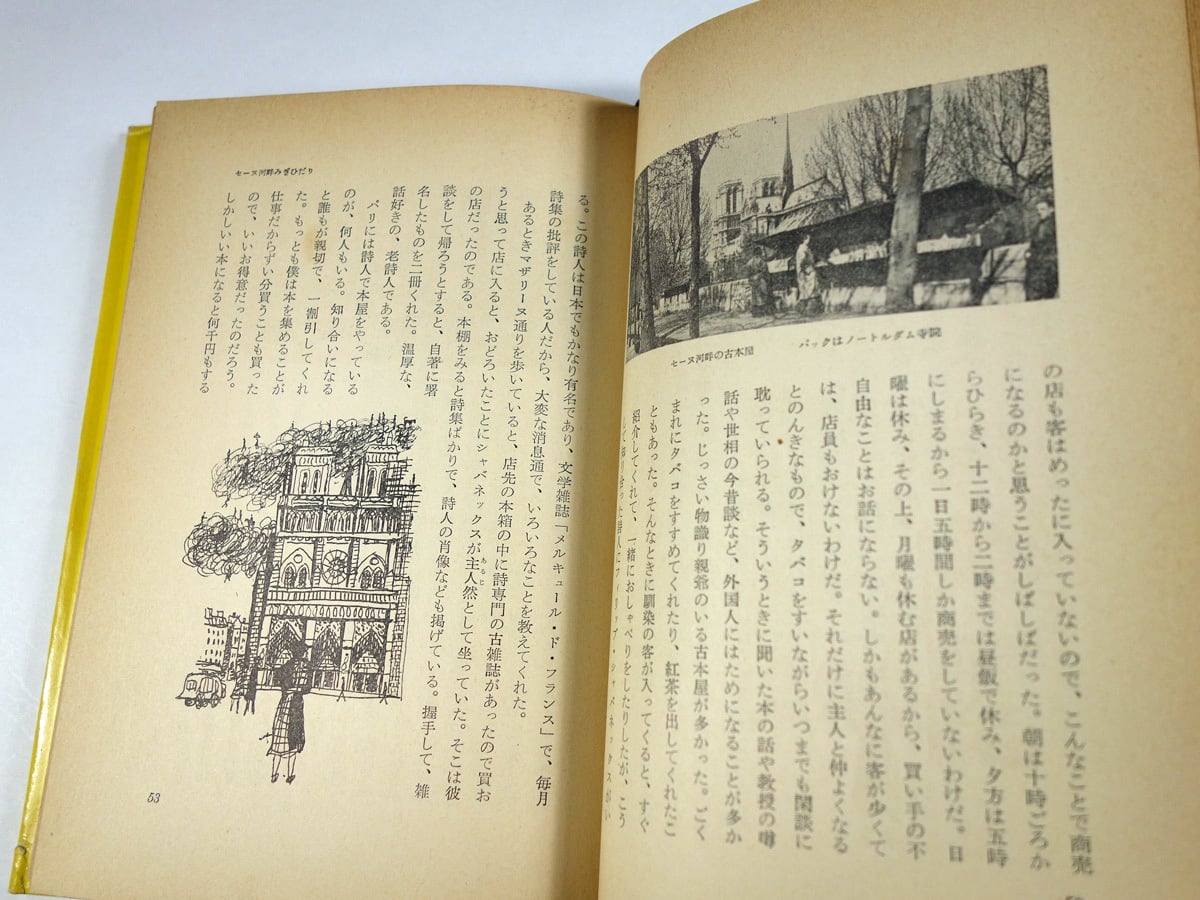 セーヌ河畔の古本屋　バックはノートルダム寺院
の店も客はめったに入っていないので、こんなことで商売
になるのかと思うことがしばしばだった。朝は十時ごろか
らひらき、十二時から二時までは昼飯で休み、夕方は五時
にしまるから一日五時間しか商売をしていないわけだ。日
曜は休み、その上、月曜も休む店があるから、買い手の不
自由なことはお話にならない。しかもあんなに客が少くて
は、店員もおけないわけだ。それだけに主人と仲よくなる
とのんきなもので、タバコをすいながらいつまでも閑談に
耽っていられる。そういうときに聞いた本の話や教授の噂
話や世相の今昔談など、外国人にはためになることが多か
った。じっさい物識り親爺のいる古本屋が多かった。ごく
まれにタバコをすすめてくれたり、紅茶を出してくれたこ
ともあった。そんなときに馴染の客が入ってくると、すぐ
紹介してくれて、一緒におしゃべりをしたりしたが、こう
して知り合った詩人にフィリップ・シャバネックスがい
セーヌ河畔みぎひだり
る。この詩人は日本でもかなり有名であり、文学雑誌「メルキュール・ド・フランス」で、毎月
詩集の批評をしている人だから、大変な消息通で、いろいろなことを教えてくれた。
あるときマザリーヌ通りを歩いていると、店先の本箱の中に詩専門の古雑誌があったので買お
うと思って店に入ると、おどろいたことにシャバネックスが主人然として坐っていた。そこは彼
あるじ
の店だったのである。本棚をみると詩集ばかりで、詩人の肖像なども掲げている。握手して、雑
談をして帰ろうとすると、自著に署
名したものを二冊くれた。温厚な、
話好きの、老詩人である。
パリには詩人で本屋をやっている
のが、何人もいる。知り合いになる
と誰もが親切で、一割引してくれ
た。もっとも僕は本を集めることが
仕事だからずい分買うことも買った
ので、いいお得意だったのだろう。
しかしいい本になると何千円もする
53